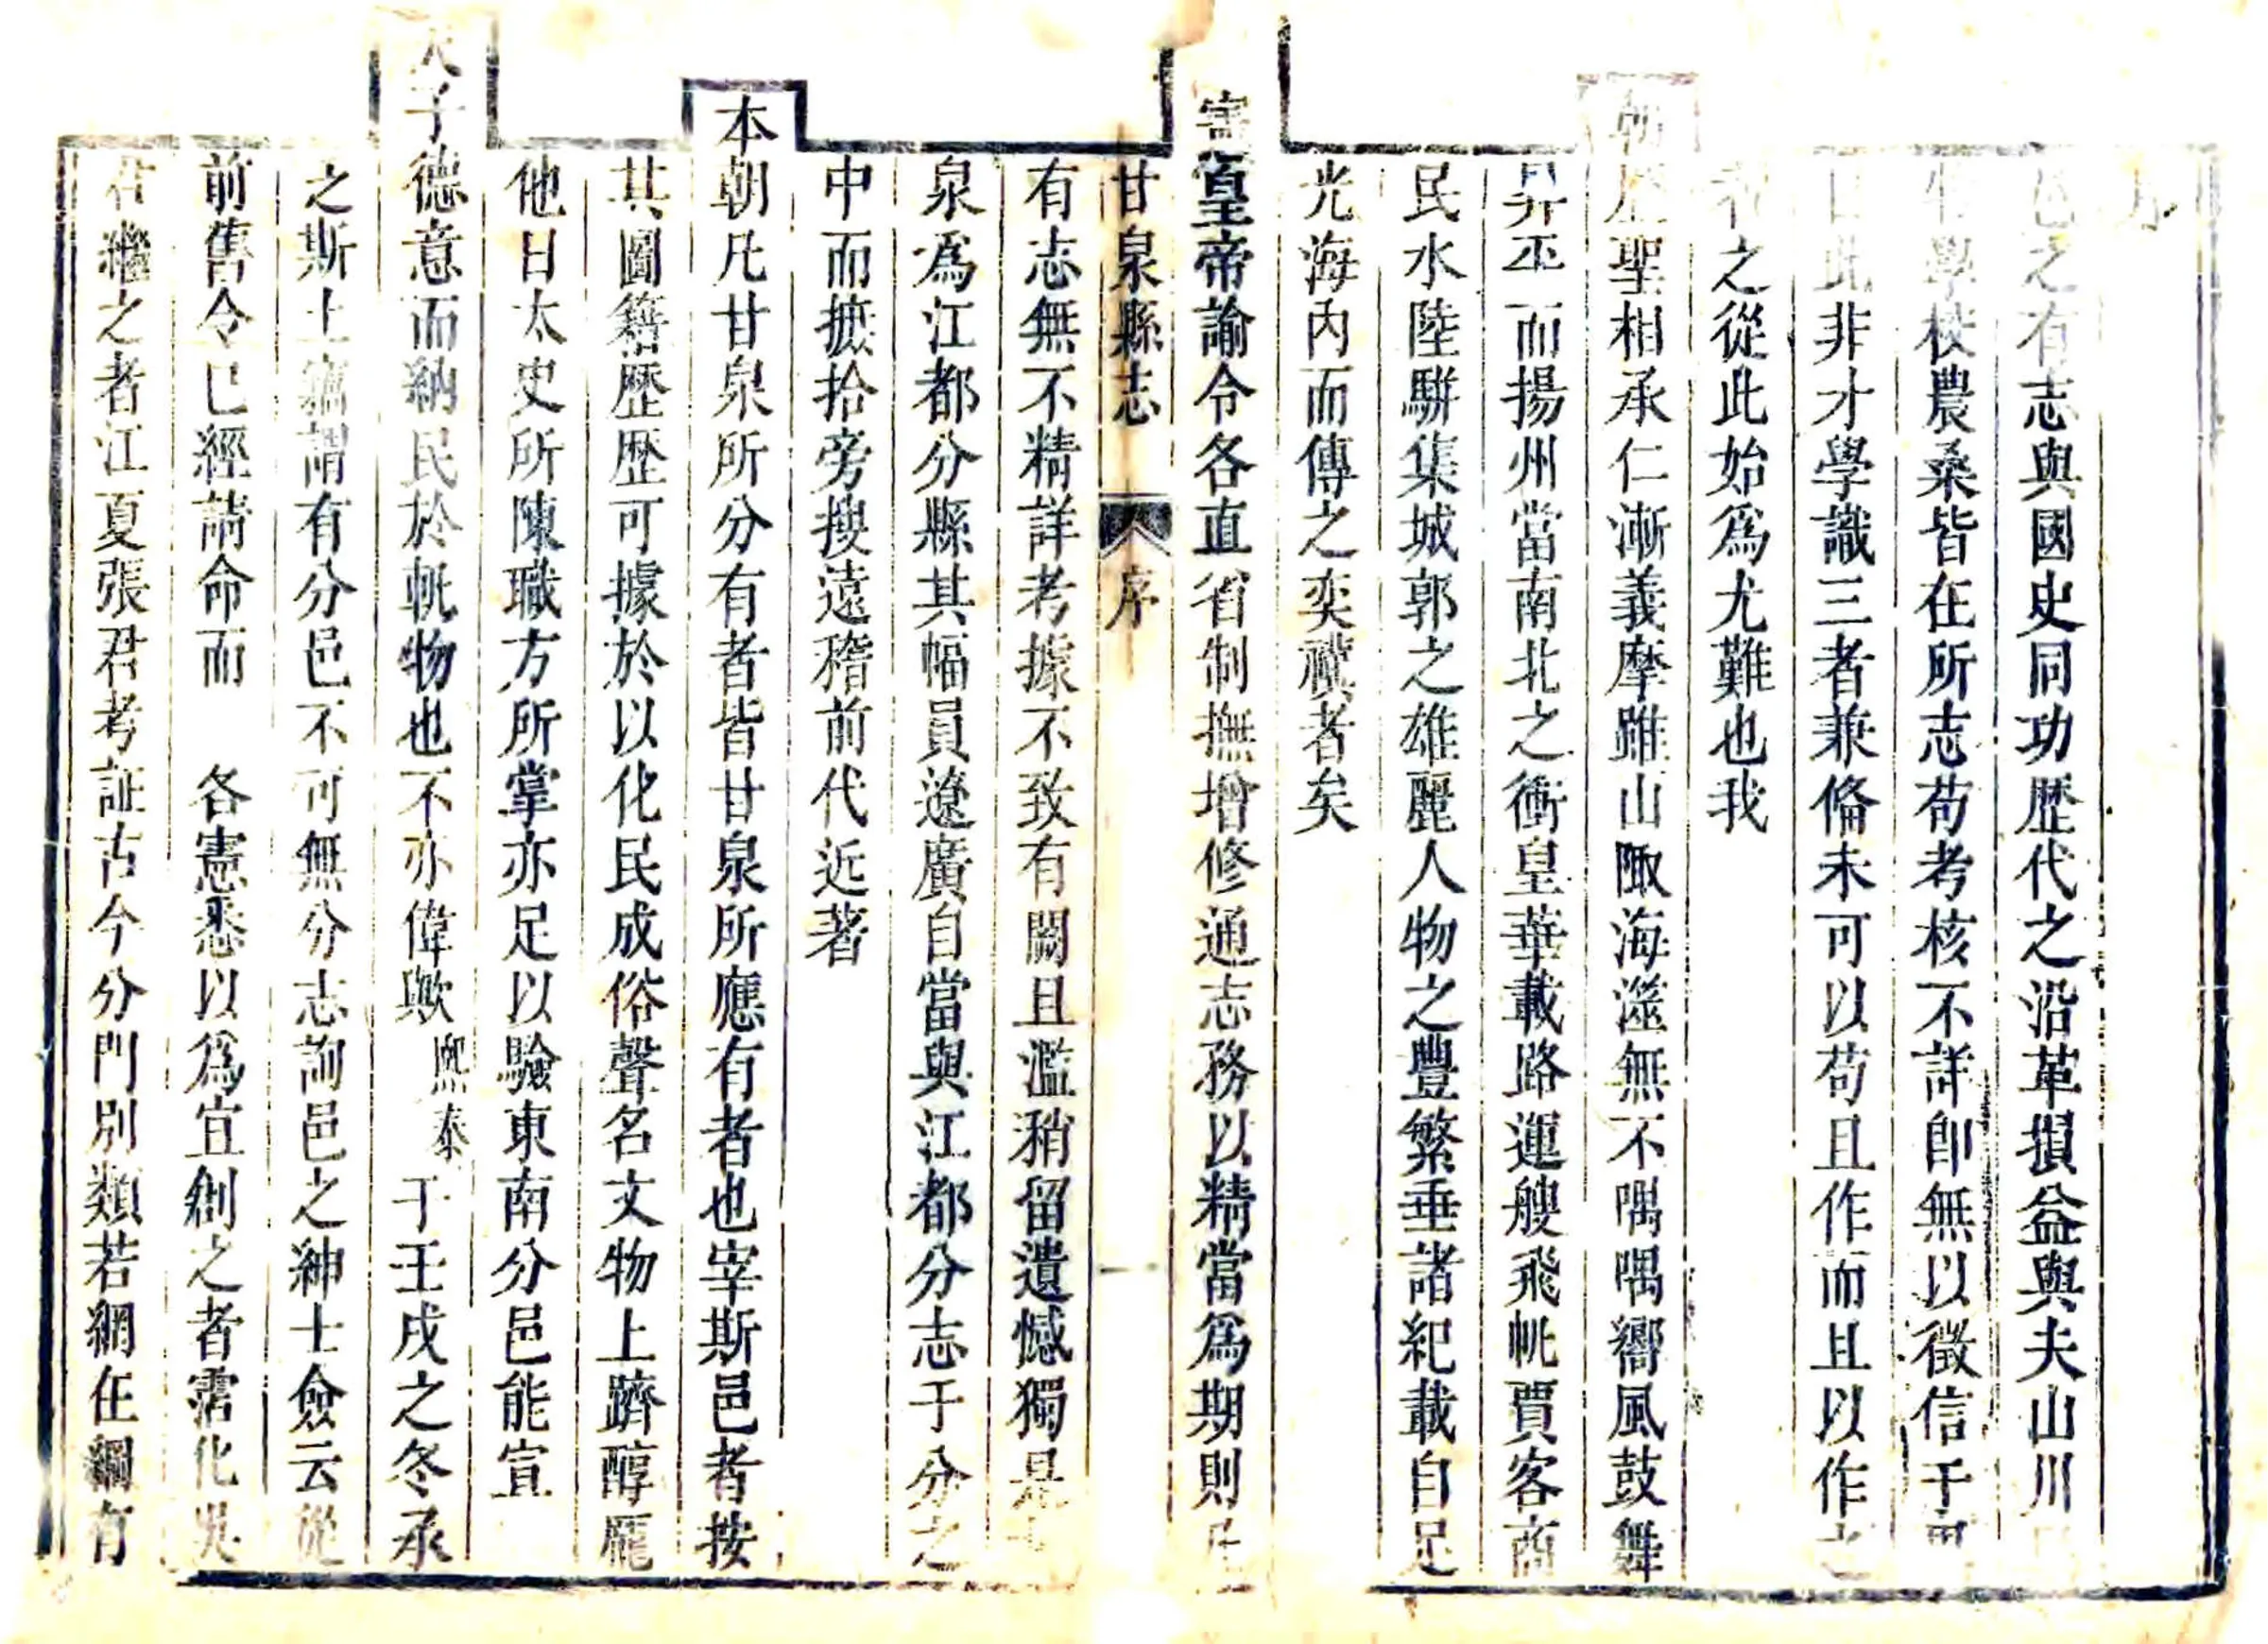 序
邑之有志與國史同功歷代之沿革損益與夫山川
學校農桑皆在所志苟考核不詳即無以徵信于
日此非才學識三者兼偹未可以苟且作而且以作之
之從此始爲尤難也我
朝聖相承仁漸義摩雖山陬海澨無不喁喁嚮風鼓舞
丕而揚州當南北之衝皇華載路運艘飛帆賈客商
民水陸駢集城郭之雄麗人物之豐繁垂諸紀載自足
光海內而傳之奕禩者矣
憲皇帝諭令各直省制撫增修通志務以精當爲期則
甘泉縣志 序 一
有志無不精詳考據不致有闕且濫稍留遺憾獨是
泉爲江都分縣其幅員遼廣自當與江都分志于分之
中而摭拾旁搜遠稽前代近著
本朝凡甘泉所分有者皆甘泉所應有者也宰斯邑者按
其圖籍歷歷可據於以化民成俗聲名文物上躋醇龎
他日太史所陳職方所掌亦足以驗東南分邑能宣
天子德意而納民於軌物也不亦偉歟熙泰于壬戌之冬承
之斯土竊謂有分邑不可無分志詢邑之紳士僉云從
前舊令已經請命而 各憲悉以爲宜創之者霑化吳
君繼之者江夏張君考証古今分門別類若網在綱有